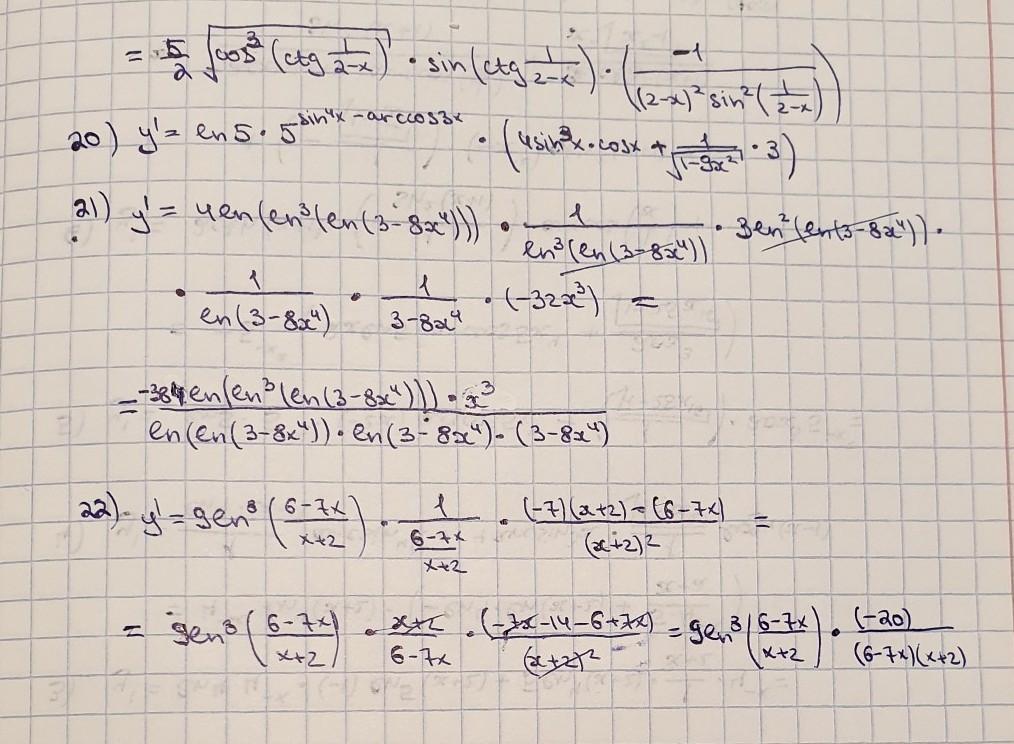 = 5/2 √(cos³(ctg 1/(2-x))) · sin(ctg 1/(2-x)) · (-1/((2-x)² sin²(1/(2-x))))
20) y' = ln5 · 5^(sin⁴x - arccos3x) · (4sin³x · cosx + 1/√(1-9x²) · 3)
21) y' = 4ln(ln³(ln(3-8x⁴))) · 1/(ln³(ln(3-8x⁴))) · 3ln²(ln(3-8x⁴)) ·
· 1/(ln(3-8x⁴)) · 1/(3-8x⁴) · (-32x³) =
= (-384ln(ln³(ln(3-8x⁴))) · x³)/(ln(ln(3-8x⁴)) · ln(3-8x⁴) · (3-8x⁴))
22) y' = 9ln⁸((6-7x)/(x+2)) · 1/((6-7x)/(x+2)) · ((-7)(x+2) - (6-7x))/(x+2)² =
= 9ln⁸((6-7x)/(x+2)) · (x+2)/(6-7x) · (-7x-14-6+7x)/(x+2)² = 9ln⁸((6-7x)/(x+2)) · (-20)/((6-7x)(x+2))